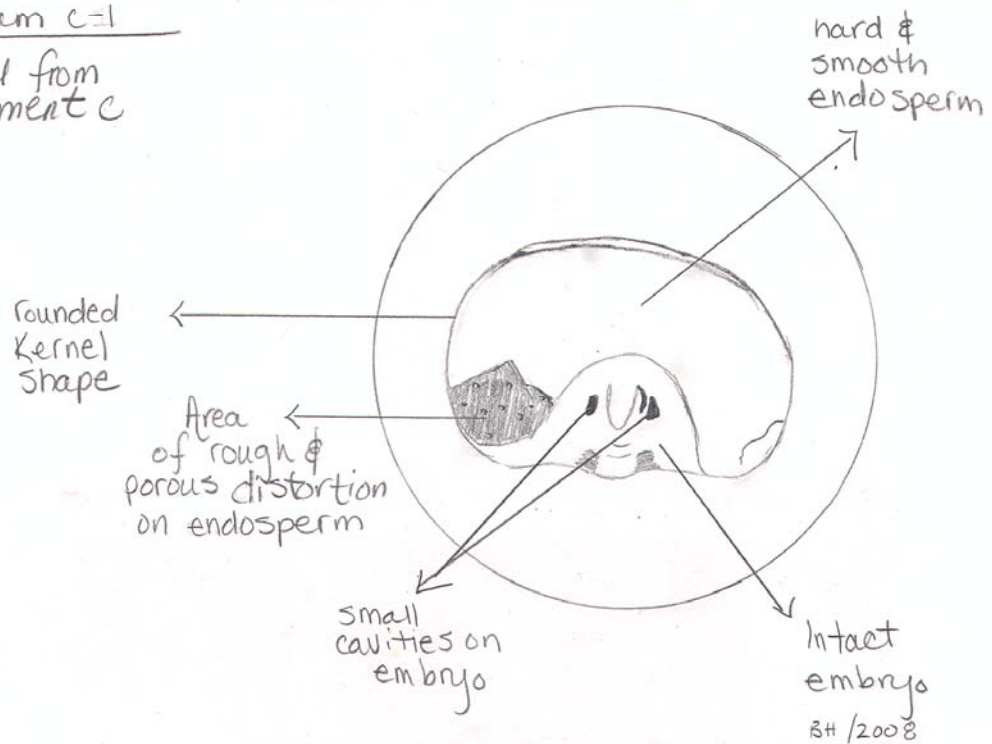 c=1
from
c
hard &
smooth
endosperm
rounded
Kernel
shape
Area
of rough &
porous distortion
on endosperm
small
cavities on
embryo
Intact
embryo
BH /2008